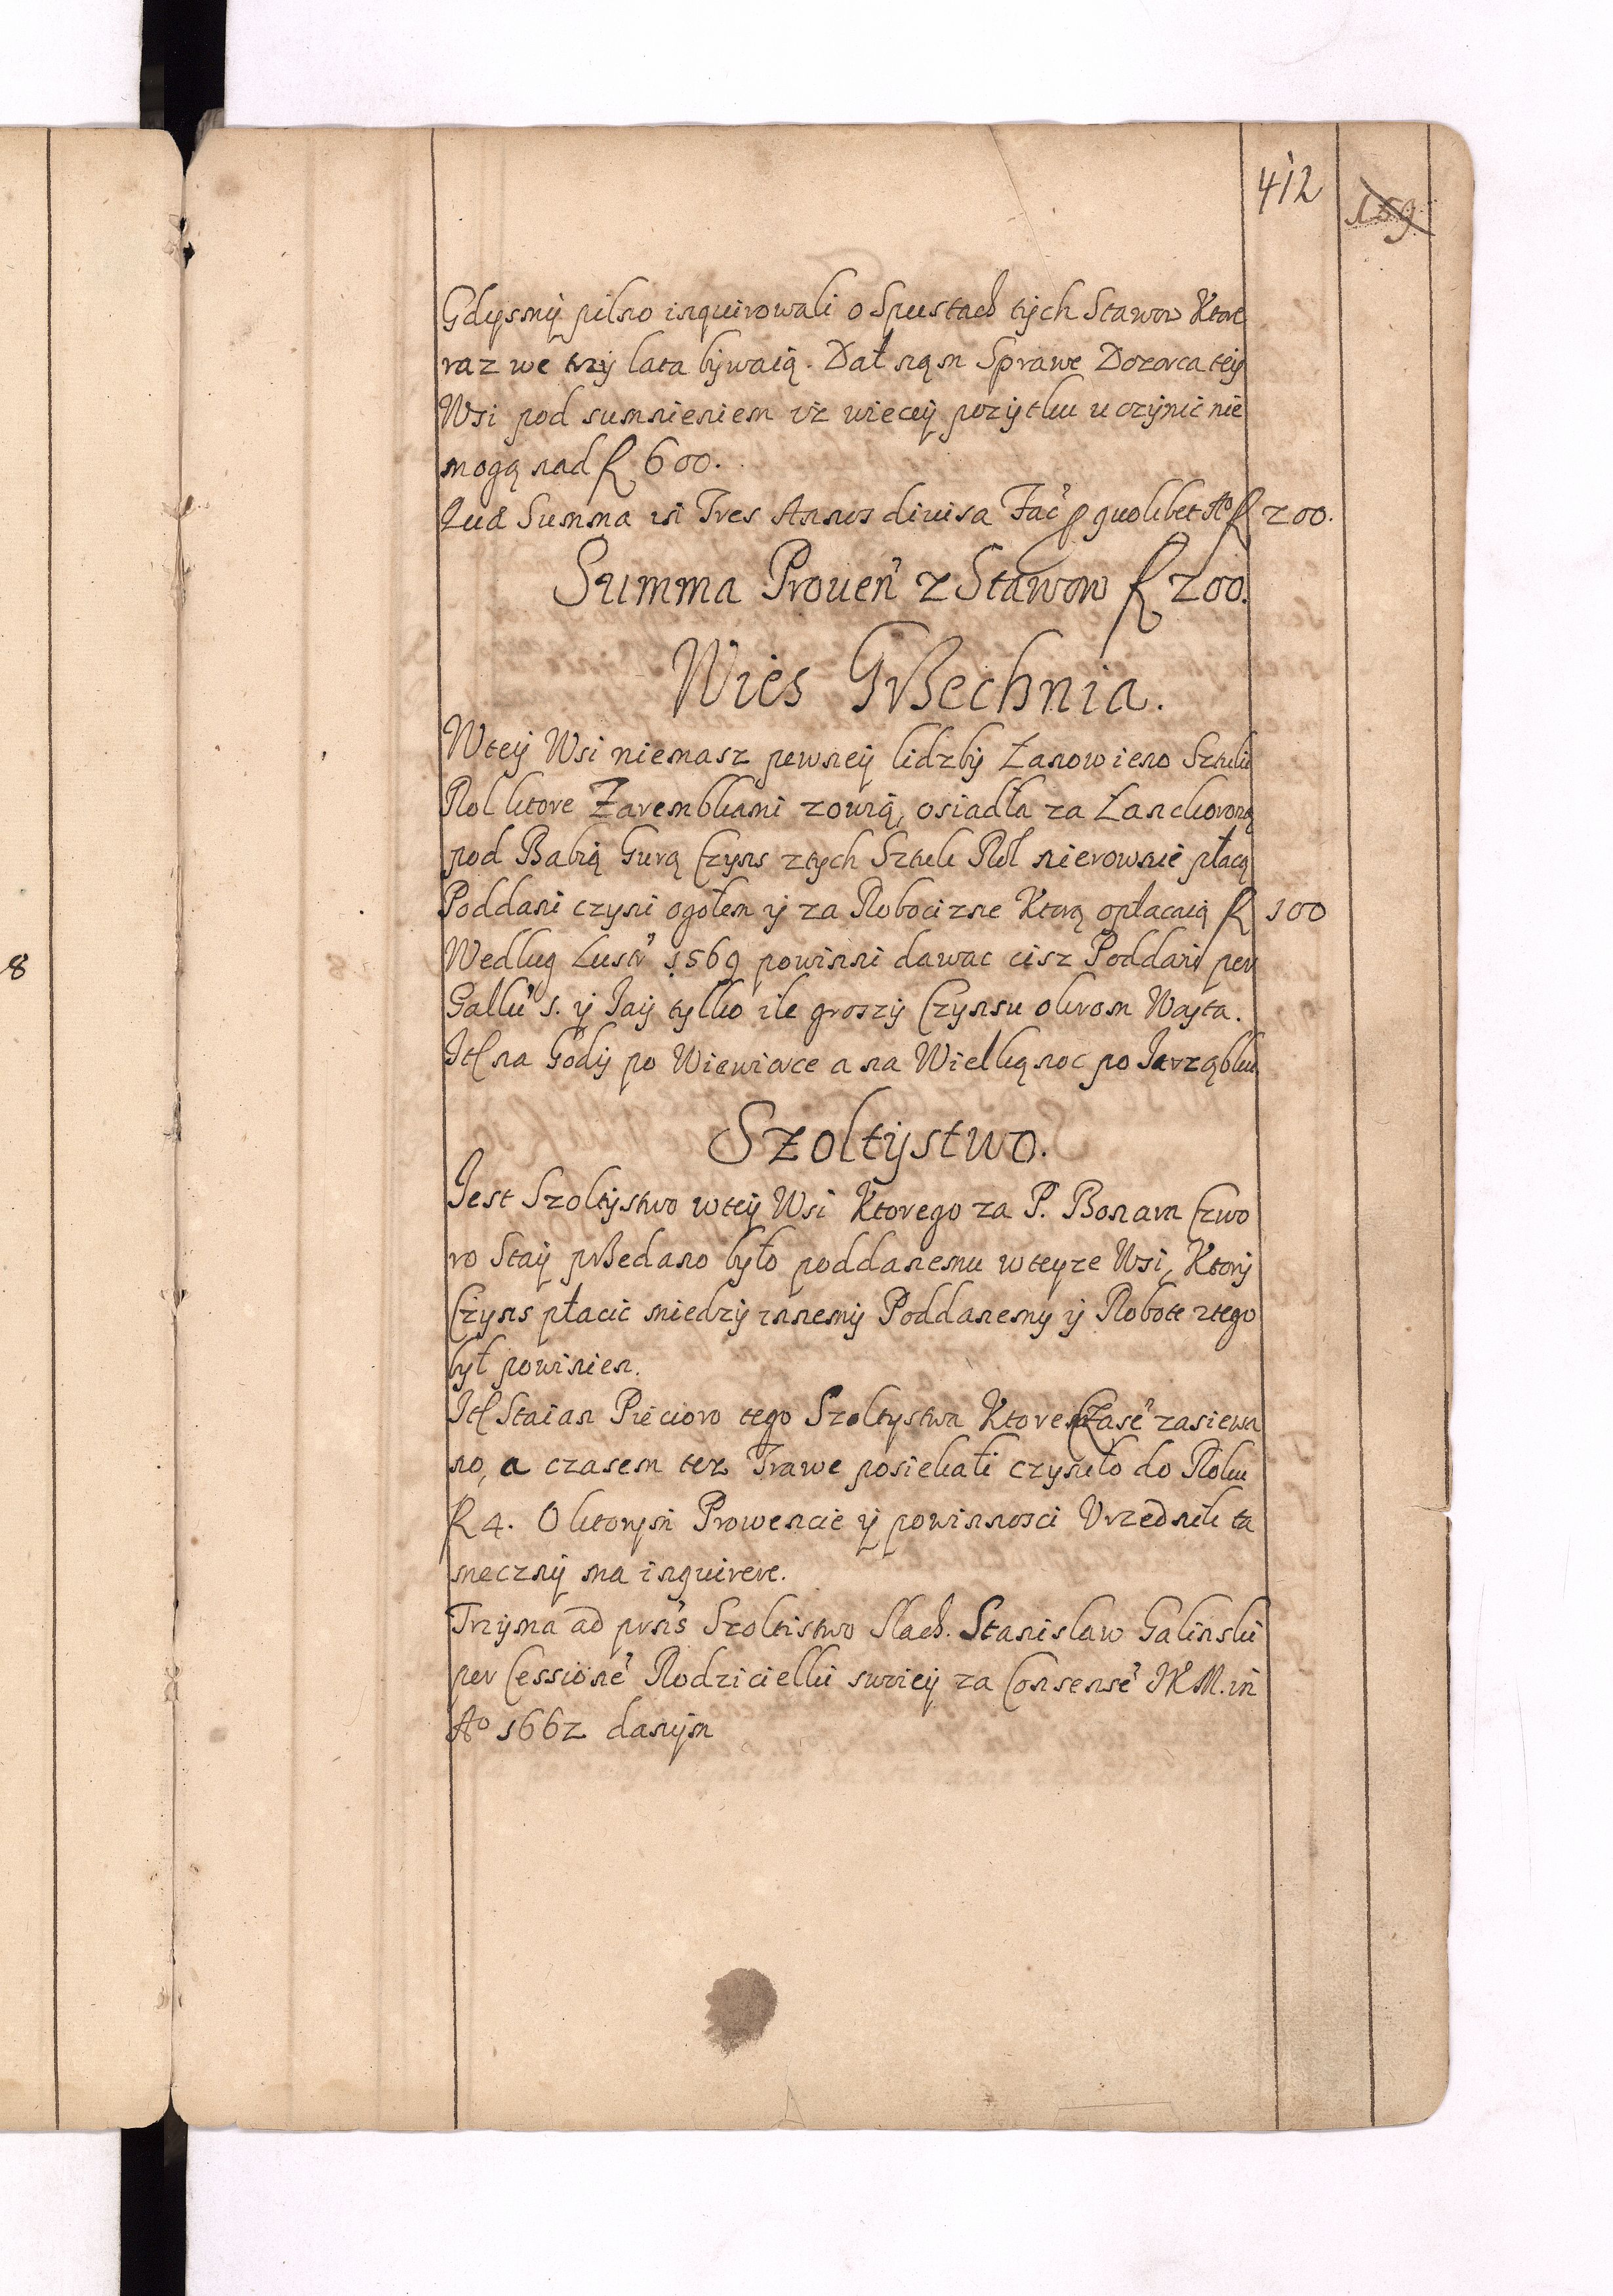 412
159
Gdysmÿ pilno inquirowali o Spustach tÿch Stawow Ktore
raz we trzÿ lata bÿwaią. Dał nąm Sprawe Dozorca teÿ
Wsi pod sumnieniem iż wiecÿ pozÿtku uczÿnic nie
mogą nad f 600.
Quæ Summa in Tres Annos diuisa Fac̃ p quolibet Aº f 200.
Summa Proueñ z Stawow f 200.
Wies Grzechnia.
Wteÿ Wsi niemasz pewneÿ lidzbÿ Łanow ieno Sztuki
Rol ktore Zarembkami zowią, osiadła za Lanckoroną
pod Babią Gurą Czyns ztÿch Sztuk Ról nierownie płacą
Poddani czyni ogołem ÿ za Robocizne Ktorą opłacaią f 100
Wedlug Lustr̃ 1569 powinni dawac cisz Poddani per
Gallũ 1. ÿ Jaÿ tylko ile groszÿ Czynsu okrom Wayta.
Itẽ na Godÿ po Wiewiorce a na Wielkąnoc po Jarząbku
Szoltÿstwo.
Jest Szoltÿstwo wteÿ Wsi Ktorego za P. Bonarn Czwo
ro Staÿ przedano było poddanemu wteyze Wsi, Ktorÿ
Czyns płacic miedzÿ innemÿ Poddanemy ÿ Robote ztego
był powinien.
Itẽ Staian Pięcioro tego Szoltystwa Ktore Czasẽ zasiewa
no, a czasem tez Trawe posiekali czyniło do Roku
f 4. O ktorym Prowencie ÿ powinnosci Urzednik ta
mecznÿ ma inquirere.
Trzÿma ad prñs Szoltistwo Slach. Stanislaw Galinski
per Cessionẽ Rodzicielki swoieÿ za Consensẽ JKM. in
Aº 1662 danÿm
8